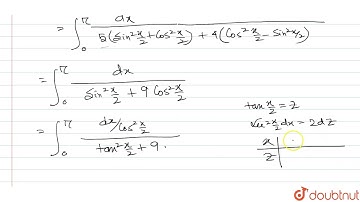 = ∫₀^π dx / 5(sin² x/2 + cos² x/2) + 4(cos² x/2 - sin² x/2)
= ∫₀^π dx / sin² x/2 + 9 cos² x/2
= ∫₀^π dx/cos² x/2 / tan² x/2 + 9 .
tan x/2 = z
sec² x/2 dx = 2dz
x
z
doubtnut